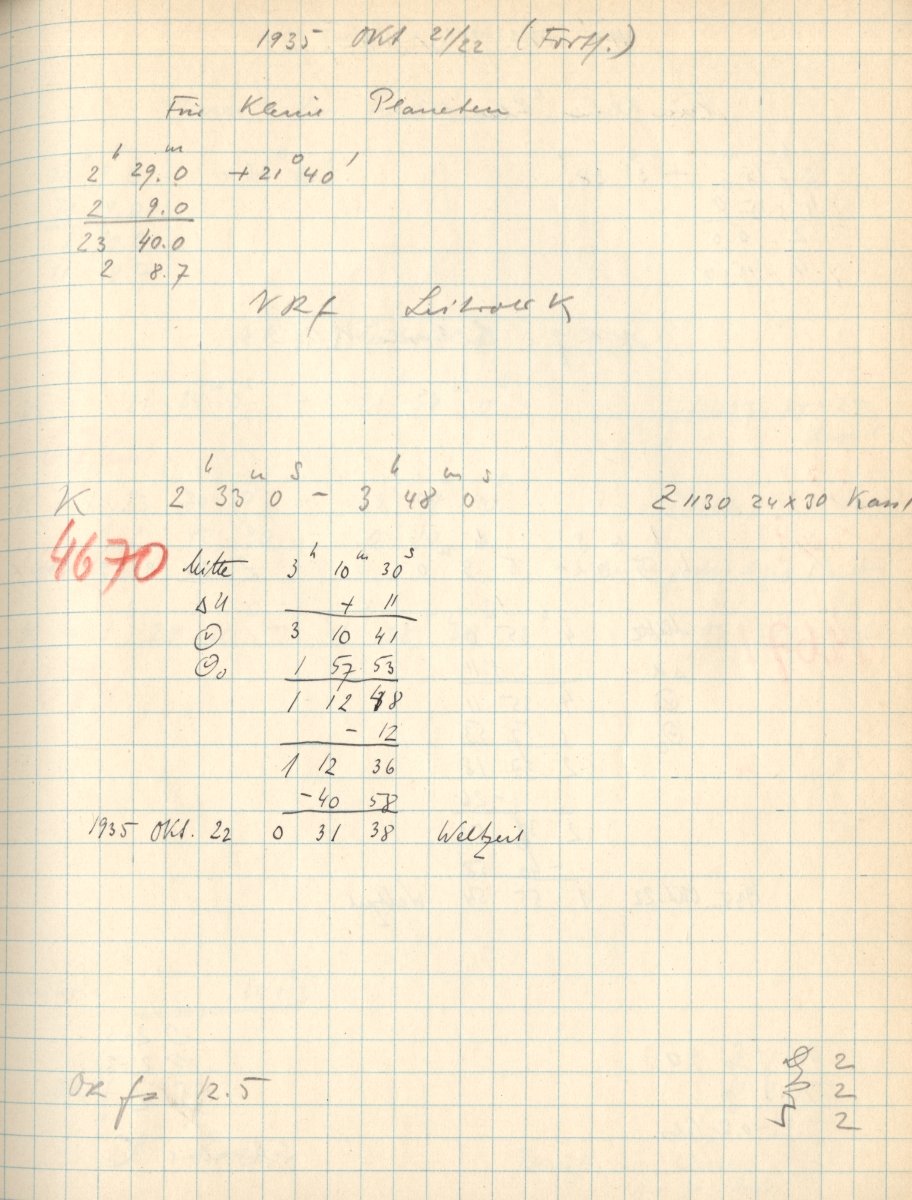 1935 Okt. 21/22 (Forts.)
Für Kleine Planeten
2ʰ 29.0ᵐ +21° 40'
2 9.0
23 40.0
2 8.7
VRf K
K 2ʰ 33ᵐ 0ˢ - 3ʰ 48ᵐ 0ˢ Z 1130 24x30 Kass
4670 Mitte 3ʰ 10ᵐ 30ˢ
ΔU + 11
3 10 41
1 57 53
1 12 48
- 12
1 12 36
-40 58
1935 Okt. 22 0 31 38 Weltzeit
OK f= 12.5
2
2
2